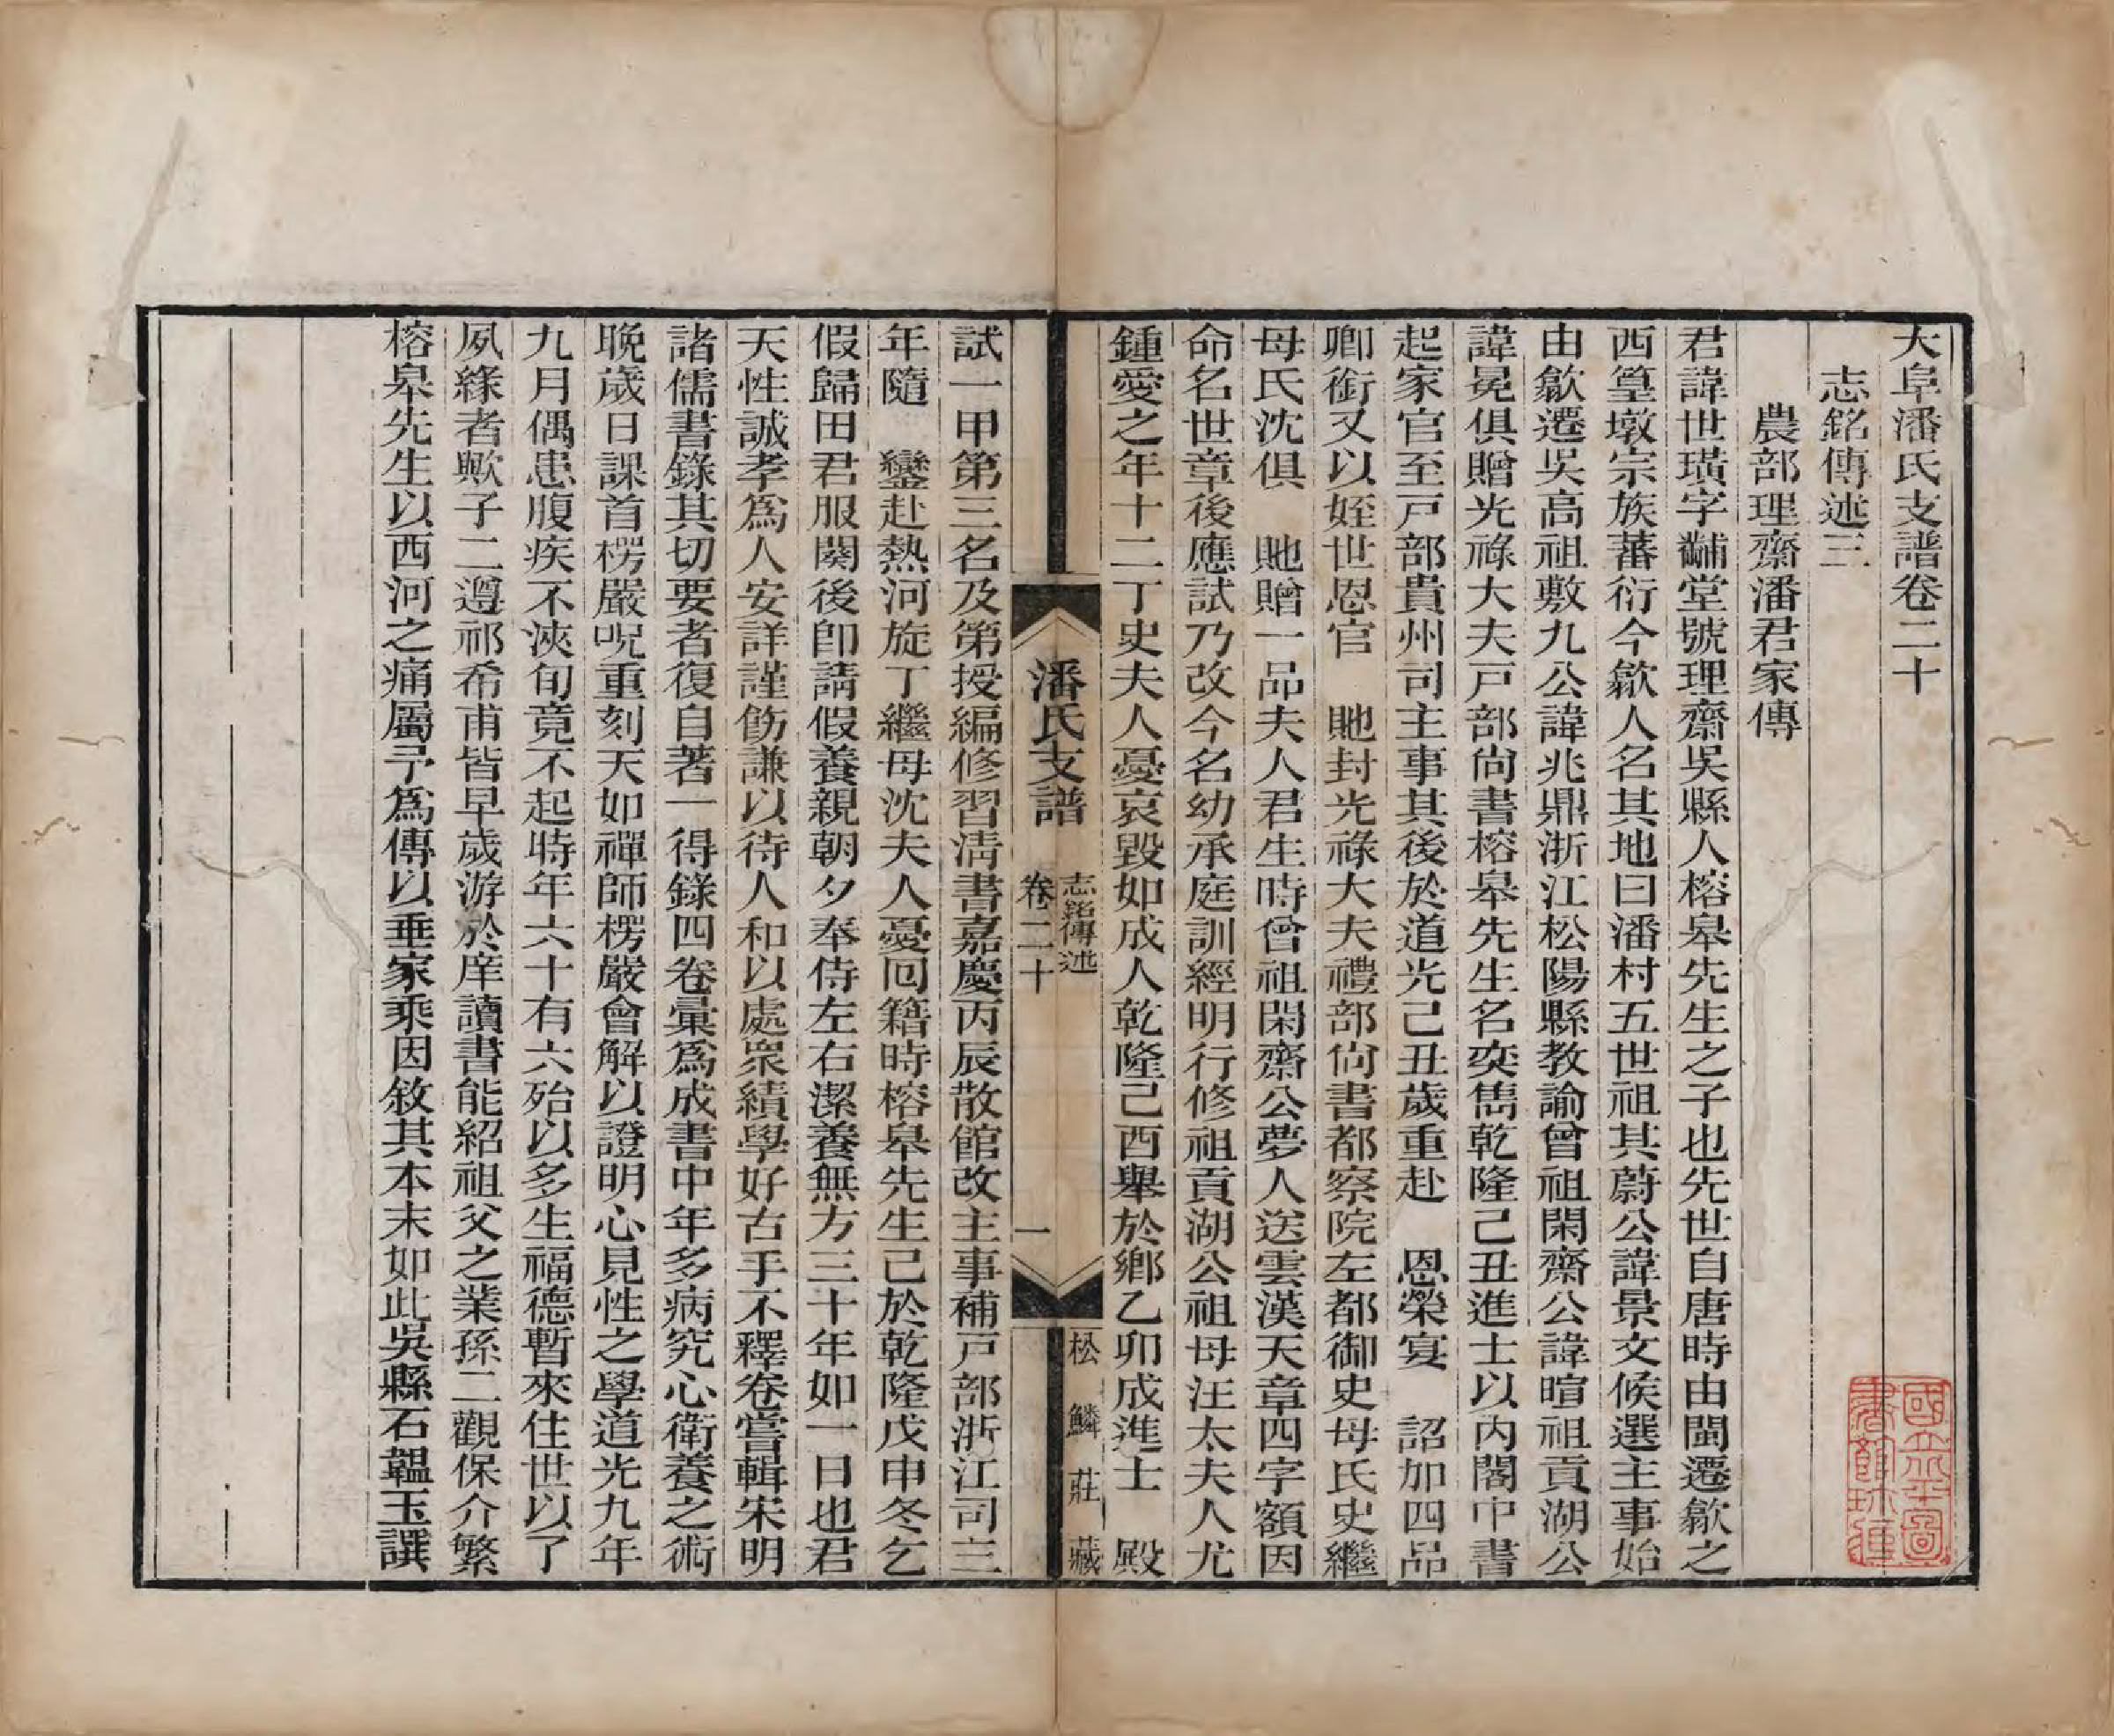 大阜潘氏支譜卷二十
志銘傳述三
農部理齋潘君家傳
君諱世璜字黼堂號理齋吳縣人榕皋先生之子也先世自唐時由閩遷歙之
西篁墩宗族蕃衍今歙人名其地曰潘村五世祖其蔚公諱景文候選主事始
由歙遷吳高祖敷九公諱兆鼎浙江松陽縣教諭曾祖閑齋公諱暄祖貢湖公
諱冕俱贈光祿大夫戸部尙書榕皋先生名奕雋乾隆己丑進士以內閣中書
起家官至戸部貴州司主事其後於道光己丑歲重赴　恩榮宴　詔加四品
卿銜又以姪世恩官　貤封光祿大夫禮部尙書都察院左都御史母氏史繼
母氏沈俱　貤贈一品夫人君生時曾祖閑齋公夢人送雲漢天章四字額因
命名世章後應試乃改今名幼承庭訓經明行修祖貢湖公祖母汪太夫人尤
鍾愛之年十二丁史夫人憂哀毀如成人乾隆己酉舉於鄉乙卯成進士　殿
潘氏支譜　卷二十　志銘傳述　一　松鱗莊藏
試一甲第三名及第授編修習淸書嘉慶丙辰散館改主事補戸部浙江司三
年隨　鑾赴熱河旋丁繼母沈夫人憂囘籍時榕皋先生已於乾隆戊申冬乞
假歸田君服闋後卽請假養親朝夕奉侍左右潔養無方三十年如一日也君
天性誠孝爲人安詳謹飭謙以待人和以處衆績學好古手不釋卷嘗輯宋明
諸儒書錄其切要者復自著一得錄四卷彙爲成書中年多病究心衛養之術
晚歲日課首楞嚴呪重刻天如禪師楞嚴會解以證明心見性之學道光九年
九月偶患腹疾不浹旬竟不起時年六十有六殆以多生福德暫來住世以了
夙緣者歟子二遵祁希甫皆早歲游於庠讀書能紹祖父之業孫二觀保介繁
榕皋先生以西河之痛屬予爲傳以垂家乘因敘其本末如此吳縣石韞玉譔
國立北平圖
書館珍藏